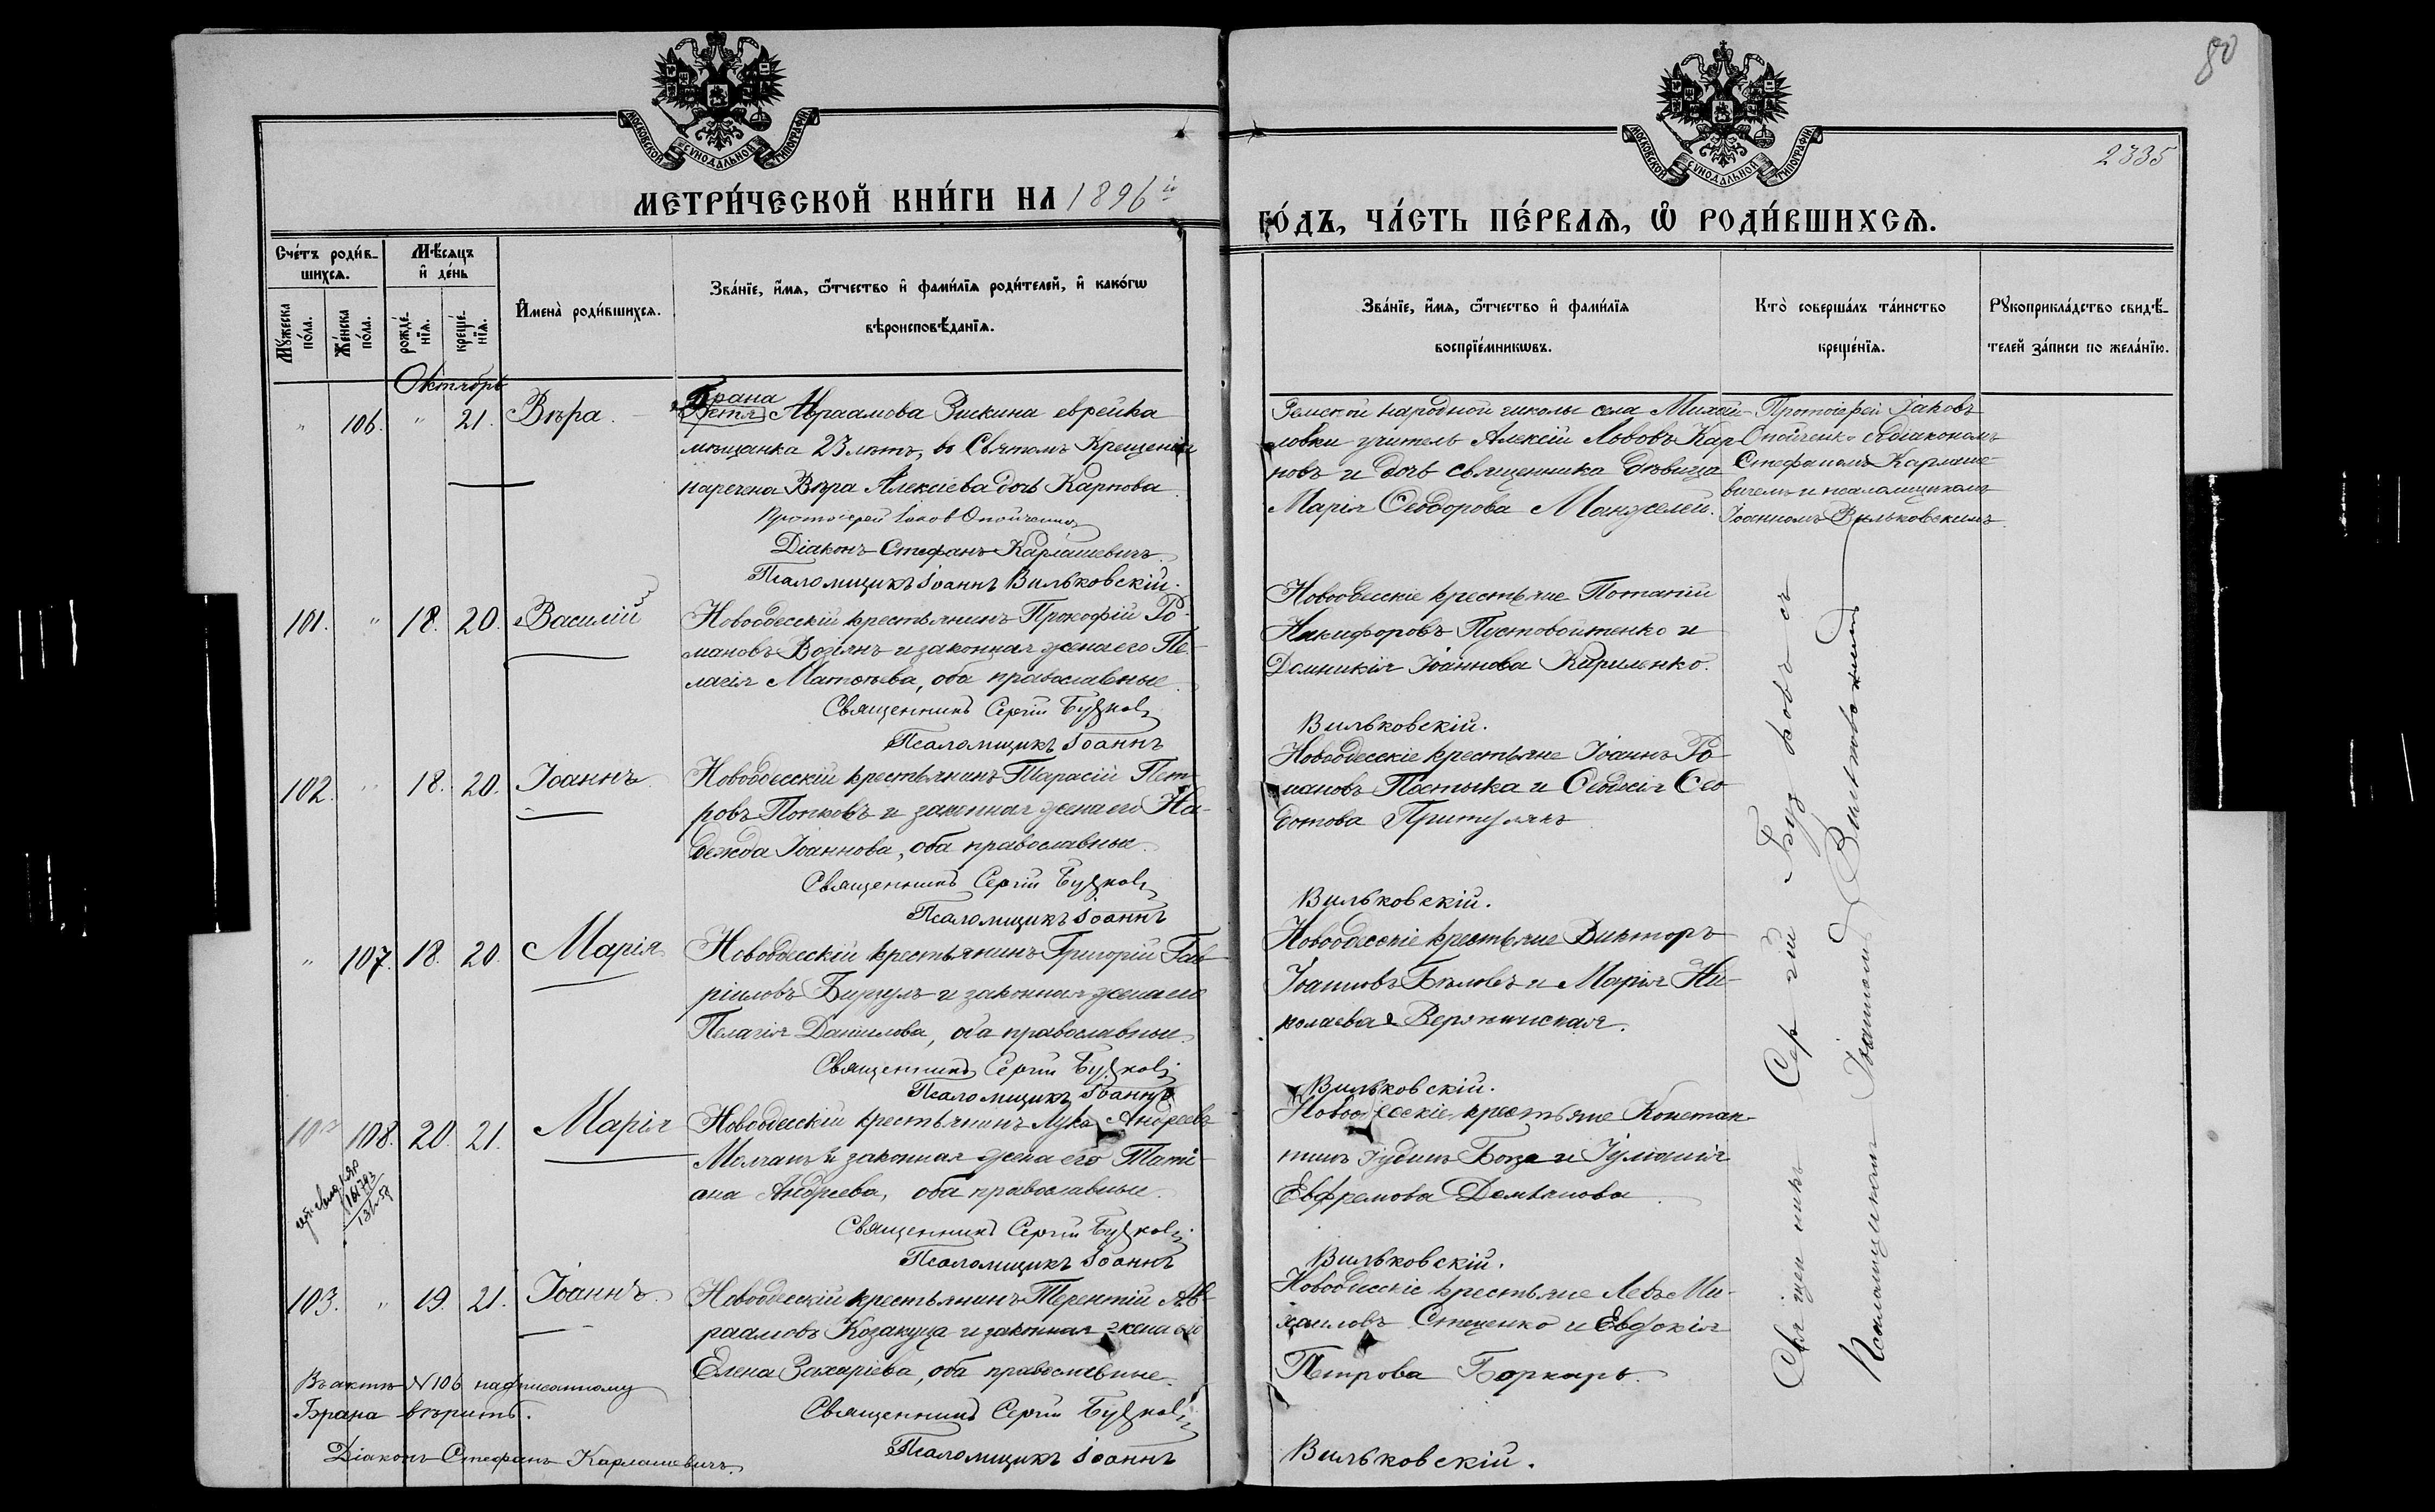 80
2335
МОСКОВСКОЙ СѴНОДАЛЬНОЙ ТИПОГРАФІИ
МОСКОВСКОЙ СѴНОДАЛЬНОЙ ТИПОГРАФІИ
МЕТРИ́ЧЕСКОЙ КНИ́ГИ НА 1896й
ГО́ДЪ, ЧА́СТЬ ПЕ́РВАѦ, Ѿ РОДИ́ВШИХСѦ.
Сче́тъ роди́в-
шихсѧ.
Мѣ́сѧцъ
и҆ де́нь
Мꙋ́жеска
по́ла.
Же́нска
по́ла.
рожде́-
нїѧ.
креще́-
нїѧ.
И҆мена̀ роди́вшихсѧ.
Зва́нїе, и҆́мѧ, ѻ҆́тчество и҆ фами́лїѧ роди́телей, и҆ како́гѡ
вѣроисповѣ́данїѧ.
Зва́нїе, и҆́мѧ, ѻ҆́тчество и҆ фами́лїѧ
воспрїе́мникѡвъ.
Кто̀ соверша́лъ та́инство
креще́нїѧ.
Рꙋкоприкла́дство свидѣ́-
телей за́писи по жела́нїю.
Октябрь
" 106. " 21. Вѣра.
Брана
Авраамова Зискина еврейка
мѣщанка 23 лѣтъ, во Святомъ Крещеніи
наречена Вѣра Алексіева дочь Карпова
Протоіерей Іаков Опойченко
Діаконъ Стефанъ Карлашевичъ.
Псаломщикъ Іоаннъ Вильковскій.
Земской народной школы села Михай-
ловки учитель Алексій Львовъ Кар
повъ и дочь священника дѣвица
Марія Ѳеодорова Манжелей.
Протоіерей Іаковъ
Опойченко съ діакономъ
Стефаномъ Карлаше-
вичемъ и псаломщикомъ
Іоанномъ Вильковскимъ.
101. " 18. 20. Василій
Новоодесскій крестьянинъ Прокофій Ро-
мановъ Возіянъ и законная жена его Пе-
лагія Матѳеева, оба православные.
Священникъ Сергій Буцковъ
Псаломщикъ Іоаннъ
Новоодесскіе крестьяне Потапій
Никифоровъ Пустовойтенко и
Домникія Іоаннова Кириленко.
Вильковскій.
102. " 18. 20. Іоаннъ
Новоодесскій крестьянинъ Тарасій Пет-
ровъ Попковъ и законная жена его На-
дежда Іоаннова, оба православные.
Священникъ Сергій Буцковъ
Псаломщикъ Іоаннъ
Новоодесскіе крестьяне Іоаннъ Ро-
мановъ Постыка и Ѳеодосія Ѳео
дотова Притулякъ
Вильковскій.
" 107. 18. 20. Марія
Новоодесскій крестьянинъ Григорій Гав-
ріиловъ Бирзулъ и законная жена его
Пелагія Даніилова, оба православные.
Священникъ Сергій Буцковъ
Псаломщикъ Іоаннъ
Новоодесскіе крестьяне Викторъ
Іоанновъ Бѣловъ и Марія Ни-
колаева
Вильковскій.
108. 20. 21. Марія
Новоодесскій крестьянинъ Лука Андреевъ
Молчанъ и законная жена его Тати-
ана Андреева, оба православные.
Священникъ Сергій Буцковъ
Псаломщикъ Іоаннъ
Новоодесскіе крестьяне Констан-
тинъ Іудинъ Бонза и Іуліанія
Евфремова Демьянова
Вильковскій.
103. " 19. 21. Іоаннъ.
Новоодесскій крестьянинъ Терентій Ав-
раамовъ Козакуца и законная жена его
Елена Захаріева, оба православные.
Священникъ Сергій Буцковъ
Псаломщикъ Іоаннъ
Новоодесскіе крестьяне Левъ Ми-
хаиловъ Стеценко и Евдокія
Петрова Боркарь.
Вильковскій.
Въ актѣ №106 надписанному
Брана вѣрить.
Діаконъ Стефанъ Карлашевичъ.
Священникъ Сергій Буцковъ съ
Псаломщикомъ Іоанномъ Вильковскимъ